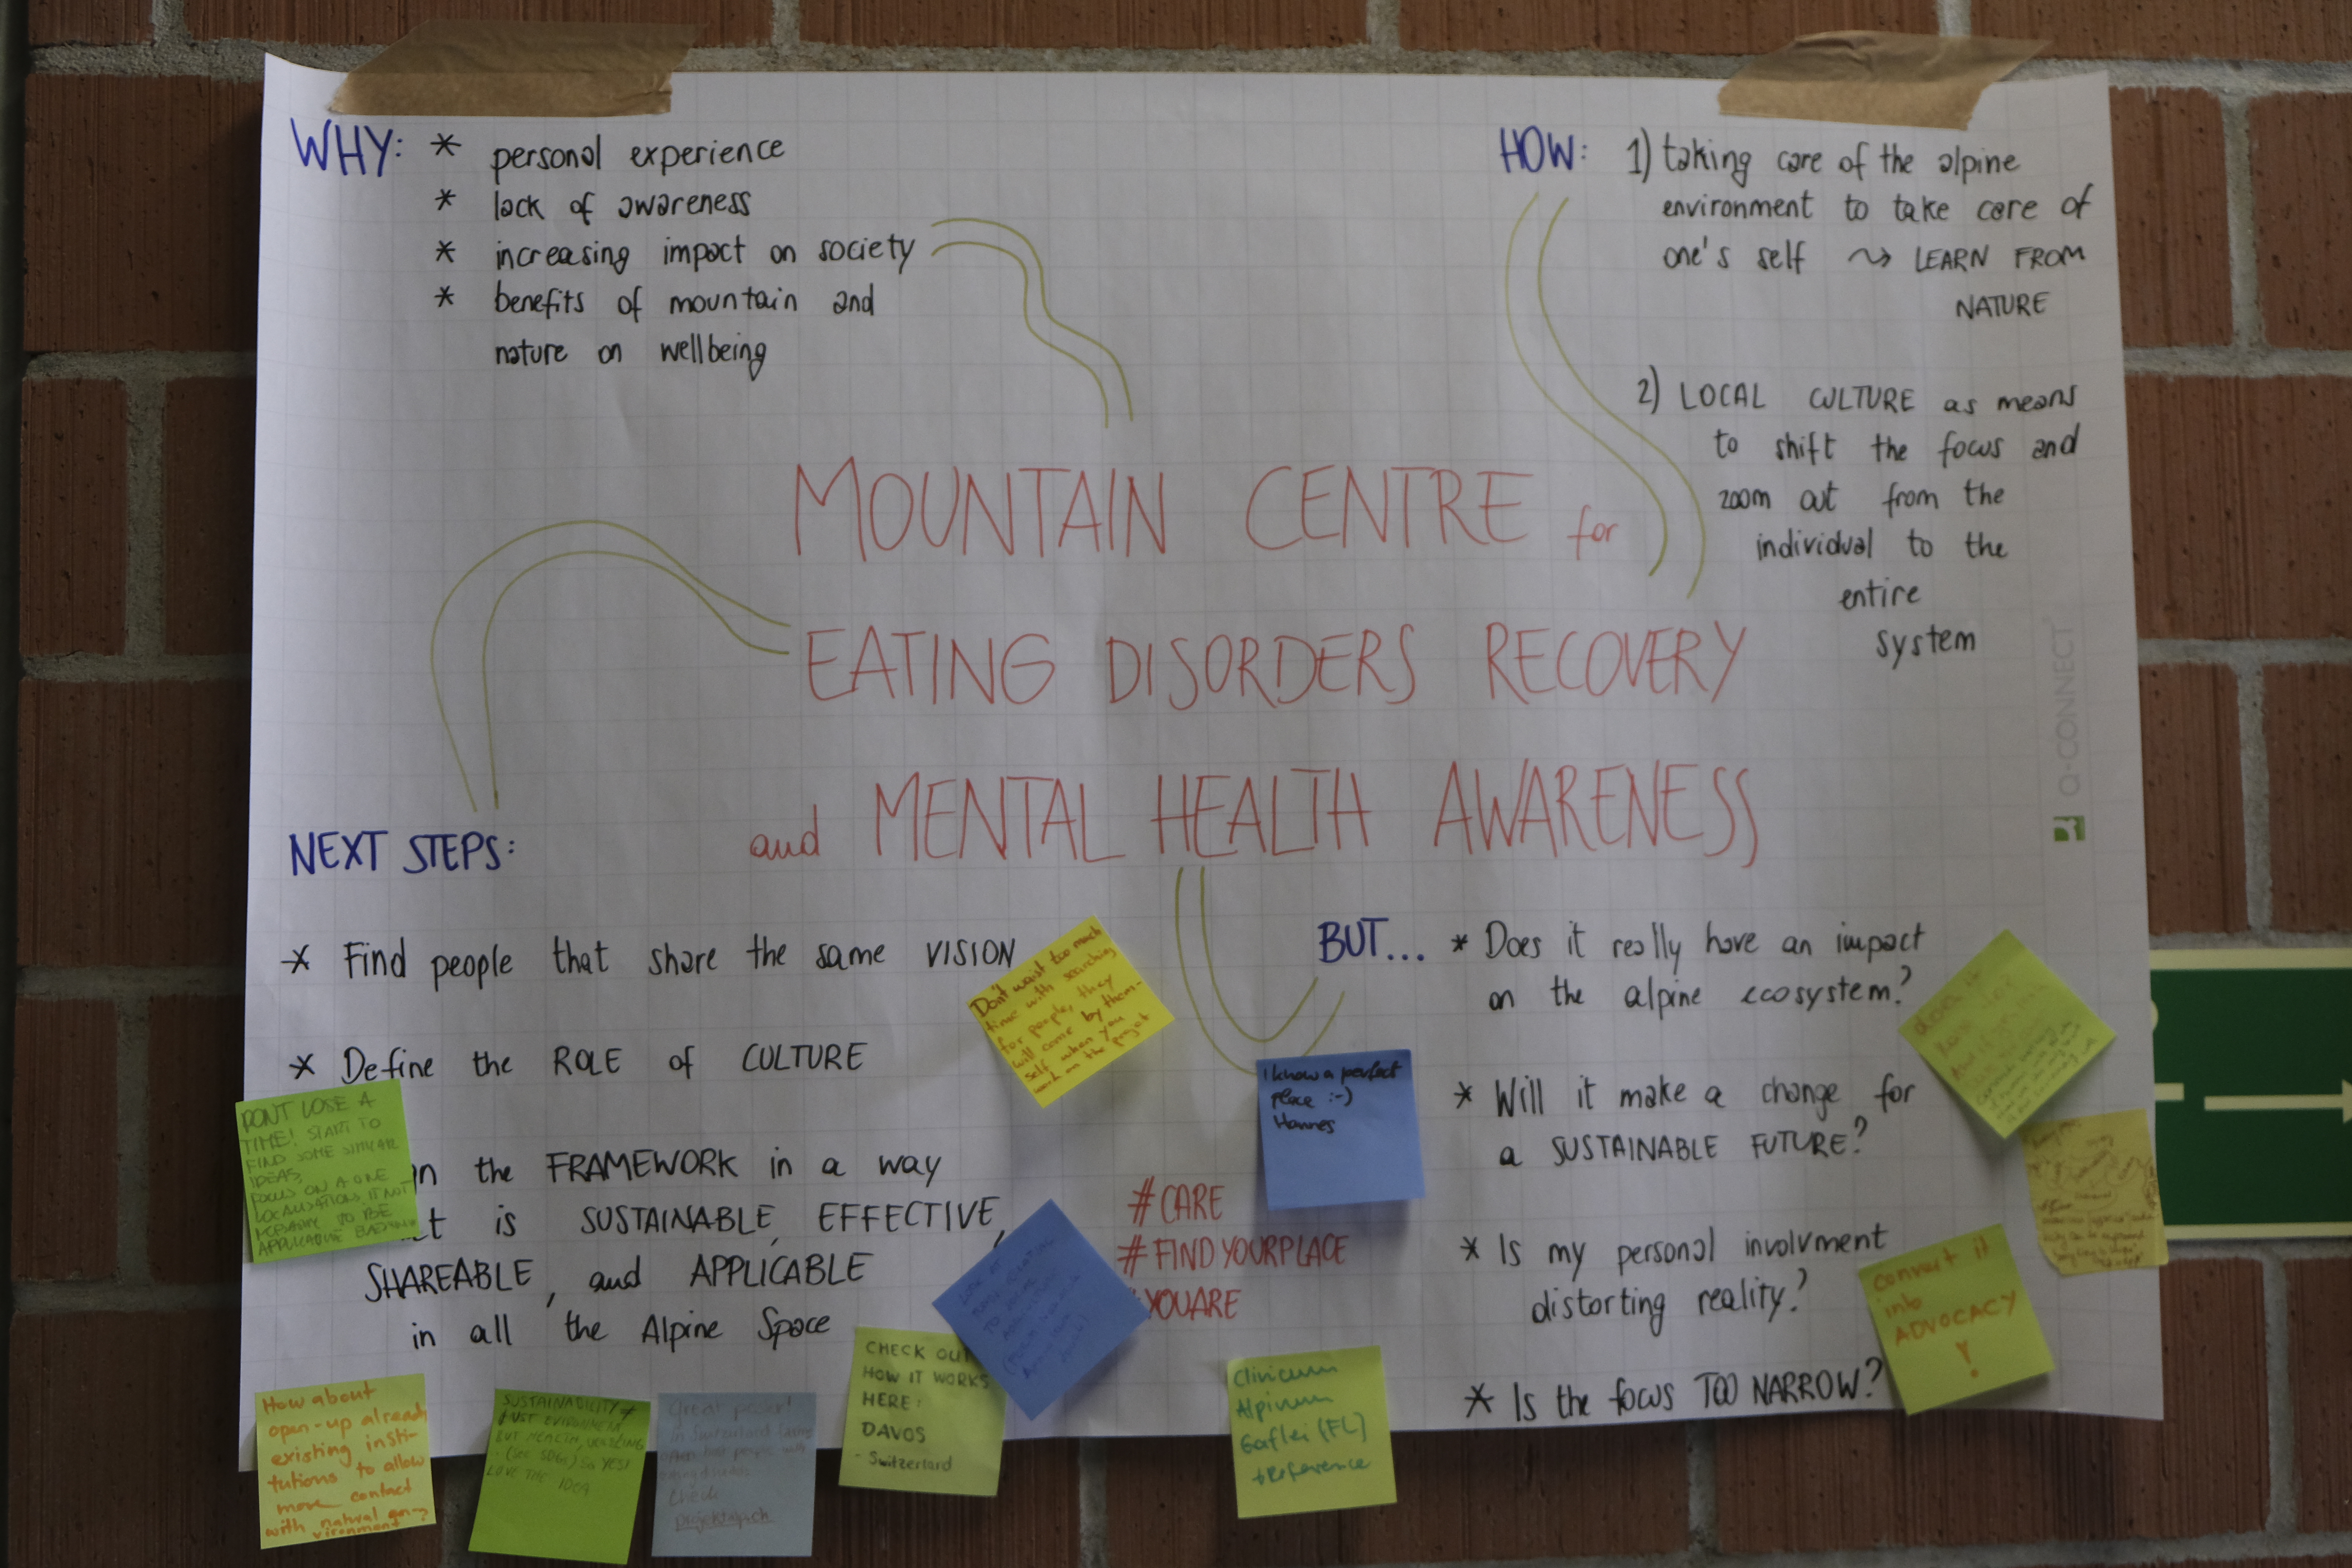 WHY: * personal experience
* lack of awareness
* increasing impact on society
* benefits of mountain and
nature on wellbeing
HOW: 1) taking care of the alpine
environment to take care of
one's self ⤳ LEARN FROM
NATURE
2) LOCAL CULTURE as means
to shift the focus and
zoom out from the
individual to the
entire
system
MOUNTAIN CENTRE for
EATING DISORDERS RECOVERY
and MENTAL HEALTH AWARENESS
Q-CONNECT
NEXT STEPS:
* Find people that share the same VISION
* Define the ROLE of CULTURE
the FRAMEWORK in a way
is SUSTAINABLE, EFFECTIVE,
SHAREABLE, and APPLICABLE
in all the Alpine Space
Don't waist too much
time with searching
for people, they
will come by them-
self when you
work on the project
DONT LOSE A
TIME! START TO
FIND SOME SIMILAR
IDEAS,
FOCUS ON A ONE
I know a perfect
place :-)
Hannes
#CARE
#FINDYOURPLACE
YOUARE
BUT... * Does it really have an impact
on the alpine ecosystem?
* Will it make a change for
a SUSTAINABLE FUTURE?
* Is my personal involvment
distorting reality?
* Is the focus TOO NARROW?
convert it
into
ADVOCACY
!
How about
open-up already
existing insti-
tutions to allow
more contact
with natural en-
vironment?
SUSTAINABILITY ≠
JUST
BUT HEALTH,
(see SDGs) so YES!
LOVE THE IDEA
Great poster!
in Switzerland
people with
Check
CHECK OUT
HOW IT WORKS
HERE:
DAVOS
- Switzerland
Clinicum
Alpinum
Gaflei (FL)
Reference